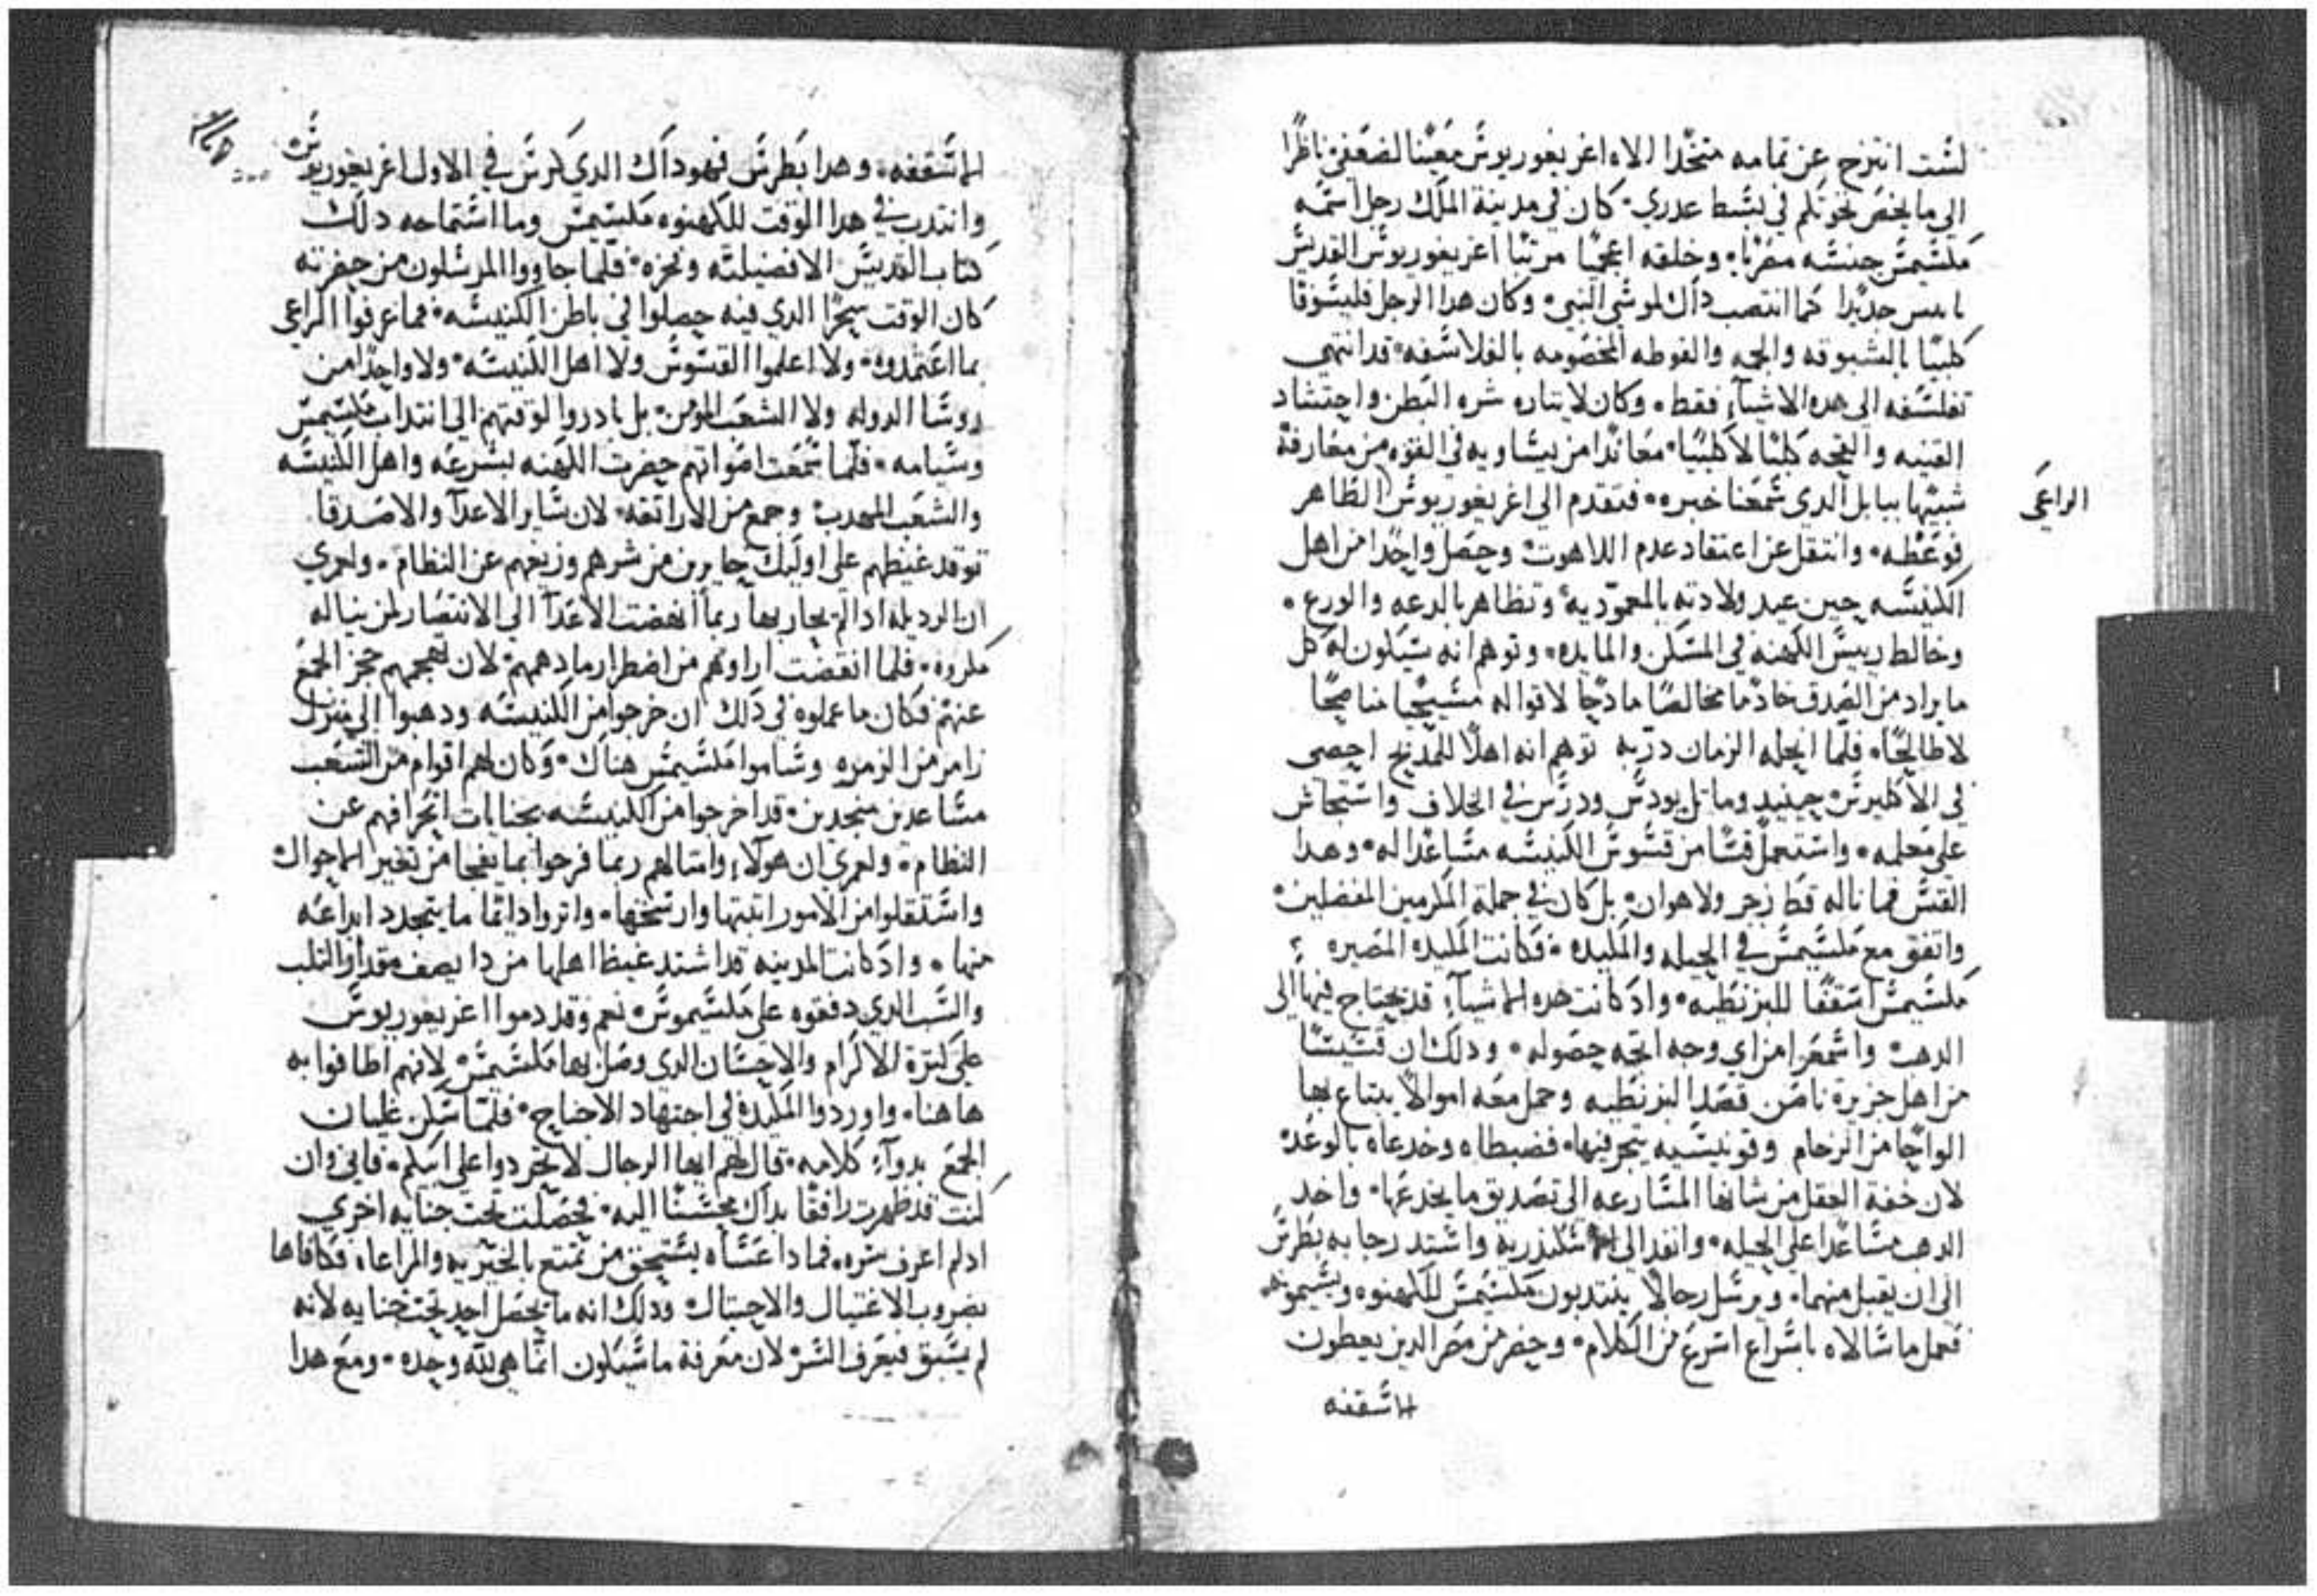 لست انتزح عن تمامه متخدا الاه اغريغوريوس معينا لضعفي ناظرا
الي ما يخص نحوتكم في بسط عدري. كان في مدينة الملك رجل اسمه
مكسيمس جنسه مصريا، وخلقه اعجميا مرتبا اغريغوريوس القديس
حديدا كما انتصب داك لموسي النبي. وكان هدا الرجل فليسوفا
كلبيا بالشبوقه والجمه والفوطه المخصومه بالفلاسفه، قد انتهي
تفلسفه الي هده الاشيآ فقط. وكان لا يناره شره البطن واحتشاد
القنيه والقحه كلبا لا كلبيا. معاندا من يساويه في القوه من معارفه
شبيها ببابل الدي سمعنا خبره. فتقدم الي اغريغوريوس الظاهر
الراعي
فوعظه. وانتقل عن اعتقاد عدم اللاهوت وحصل واحدا من اهل
الكنيسه حين عيد ولادته بالمعموديه وتظاهر بالدعه والورع.
وخالط رييس الكهنه في المسكن والمايده. وتوهم انه سيكون له كل
ما يراد من الصدق خادما مخالصا مادحا لاقواله مسيحيا مناصحا
لا طالحا. فلما الزمان دربه توهم انه اهلا للمديح احصي
في الاكليرس حينيد وما ودرس في الخلاف واستجاش
علي معلمه. واستعمل قسا من قسوس الكنيسه مساعدا له. وهدا
القس فما ناله قط زجر ولا هوان. بل كان في جملة المكرمين المفضلين.
واتفق مع مكسيمس في الحيله والمكيده. فكانت المكيده المصيره
مكسيمس اسقفا للبزنطيه. واد كانت هده الاشيآء قد يحتاج فيها الي
الدهب واسمعوا من اي وجه اتجه حصوله. ودلك ان قسيسا
من اهل جزيرة ثاسس قصد البزنطيه وحمل معه اموالا يبتاع بها
الواحا من الرخام وقونيسيه يتجر فيها. فضبطاه وخدعاه بالوعد
لان خفة العقل من شانها المسارعه الي تصديق ما يخدعها. واخد
الدهب مساعدا علي الحيله. وانفد الي الاسكندرية واشتد رجا به بطرس
الي ان يقبل منهما. ويرسل رجالا ينتدبون مكسيمس للكهنوه ويسيموه
فعمل ما سالاه باسراع اسرع من الكلام. وحضر من مصر الدين يعطون
الاسقفه
الاسقفه. وهدا بطرس فهو داك الدي كرس في الاول اغريغوريوس
وانتدب في هدا الوقت للكهنوه مكسيمس وما استماحه دلك
كتاب القديس الا فضيلته وحزه. فلما جاووا المرسلون من حضرته
كان الوقت سحرا الدي فيه حصلوا في باطن الكنيسه. فما عرفوا الراعي
بما اعتمدوه. ولا اعلموا القسوس ولا اهل الكنيسه. ولا واحدا من
روسا الدوله ولا الشعب المومن. بل بادروا لوقتهم الي انتداب مكسيمس
وسيامه. فلما سمعت اصواتهم حضرت الكهنه بسرعه واهل الكنيسه
والشعب المهدب وجمع من الاراتقه. لان ساير الاعدآ والاصدقا
توقد غيظهم علي اوليك حايرين من شرهم وزيغهم عن النظام. ولعمري
ان الرديله ادا لم يحاربها ربما انهضت الاعدآ الي الانتصار لمن يناله
مكروه. فلما انقضت اراوهم من اضطرار ما دهمهم. لان تهجمهم حجز الجمع
عنهم فكان ما عملوه في دلك ان خرجوا من الكنيسه ودهبوا الي منزل
زامر من الزمره وساموا مكسيمس هناك. وكان لهم اقوام من الشعب
مساعدين منجدين. قد اخرجوا من الكنيسه بجنايات انحرافهم عن
النظام. ولعمري ان هولاء وامثالهم ربما فرحوا بما يفجا من تغير الاحوال
واستثقلوا من الامور اثبتها وارسخها. واثروا دايما ما يتجدد ابداعه
منها. واد كانت المدينه قد اشتد غيظ اهلها من دا يصف مقدار الثلب
والسب الدي دفقوه علي مكسيموس نعم وقد دموا اغريغوريوس
علي كثرة الاكرام والاحسان الدي وصل بها مكسيمس لانهم اطافوا به
هاهنا. واوردوا المكيدة في اجتهاد الاحتياج. فلما سكن غليان
الجمع بدوآء كلامه. قال لهم ايها الرجال لا تحردوا علي اسيلكم. فاني وان
كنت قد ظهرت رافقا بداك محسنا اليه. فحصلت تحت جنايه اخري
اد لم اعرف شره. فما دا عساه يستحق من تمتع بالخيريه والمراعاه فكافاها
بضروب الاغتيال والاحتيال ودلك انه ما يحصل احد تحت جنايه لانه
لم يسبق فيعرف الشر لان معرفة ما سيكون انما هي لله وحده. ومع هدا